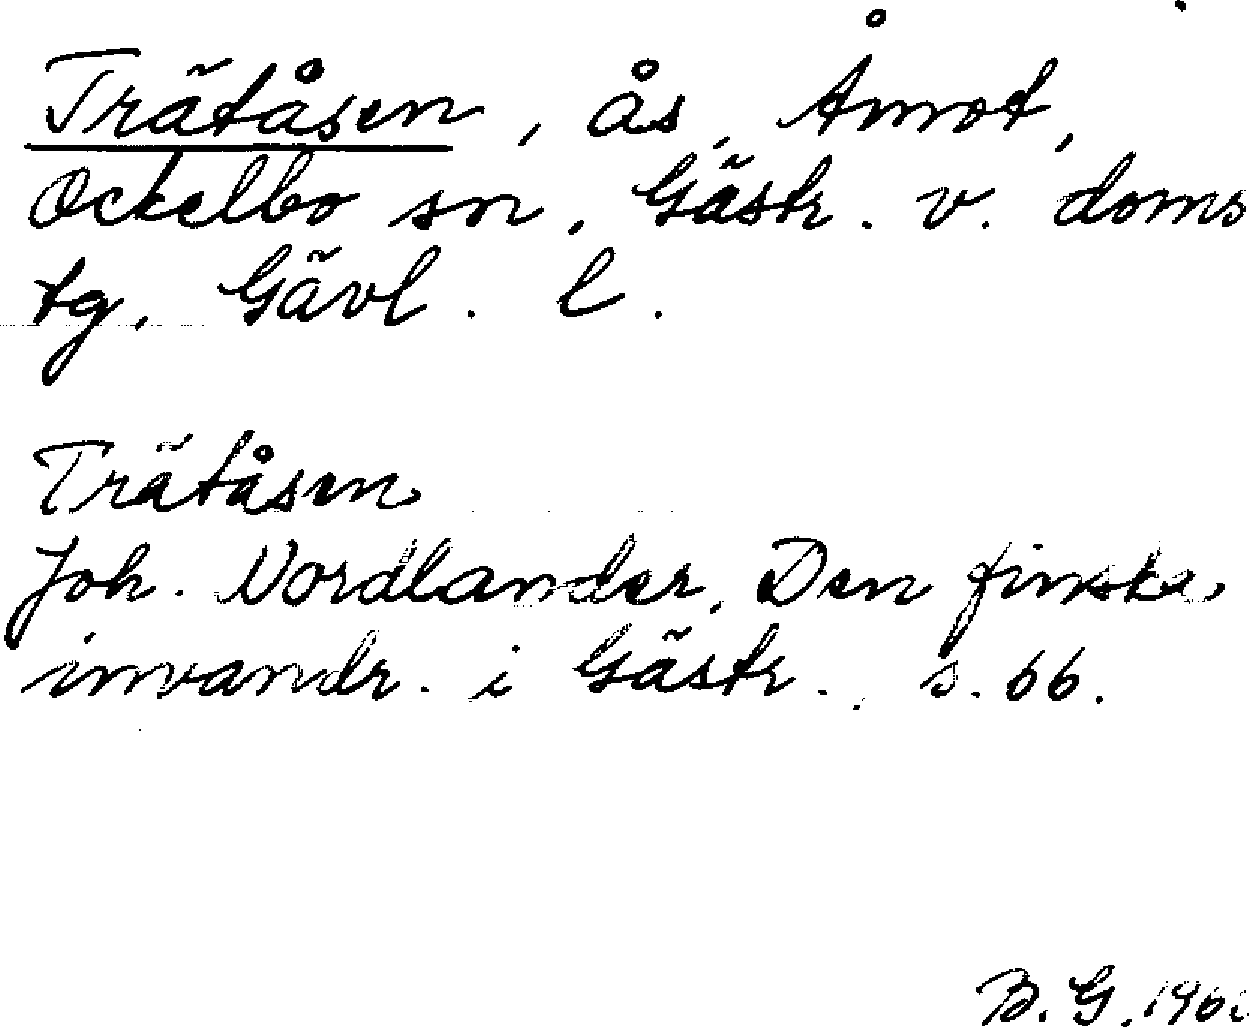 Trätåsen, ås, Åmot,
Ockelbo sn, Gästr. v. doms
tg, Gävl. l.
Trätåsen
Joh. Nordlander, Den finska
invandr. i Gästr., s. 66.
B. G.